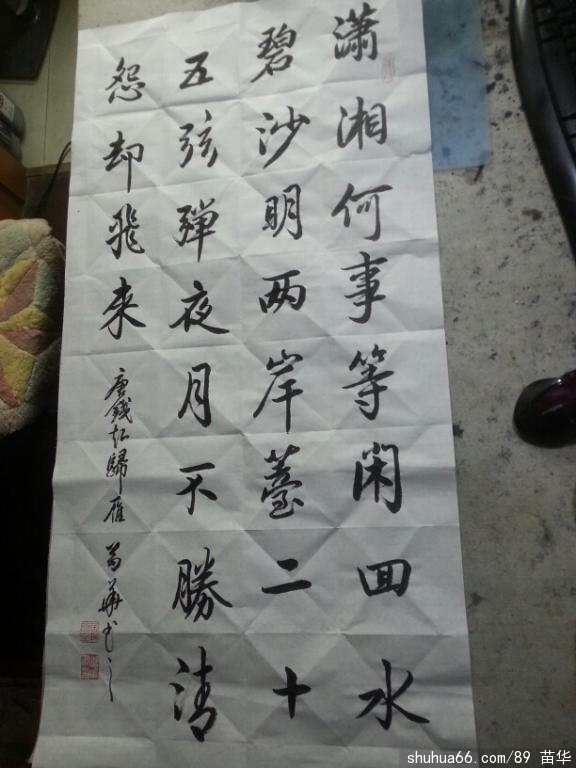 瀟湘何事等闲回水
碧沙明两岸薹二十
五弦弹夜月不勝清
怨却飛来
唐錢起歸雁 苗華书之
shuhua66.com/89 苗华